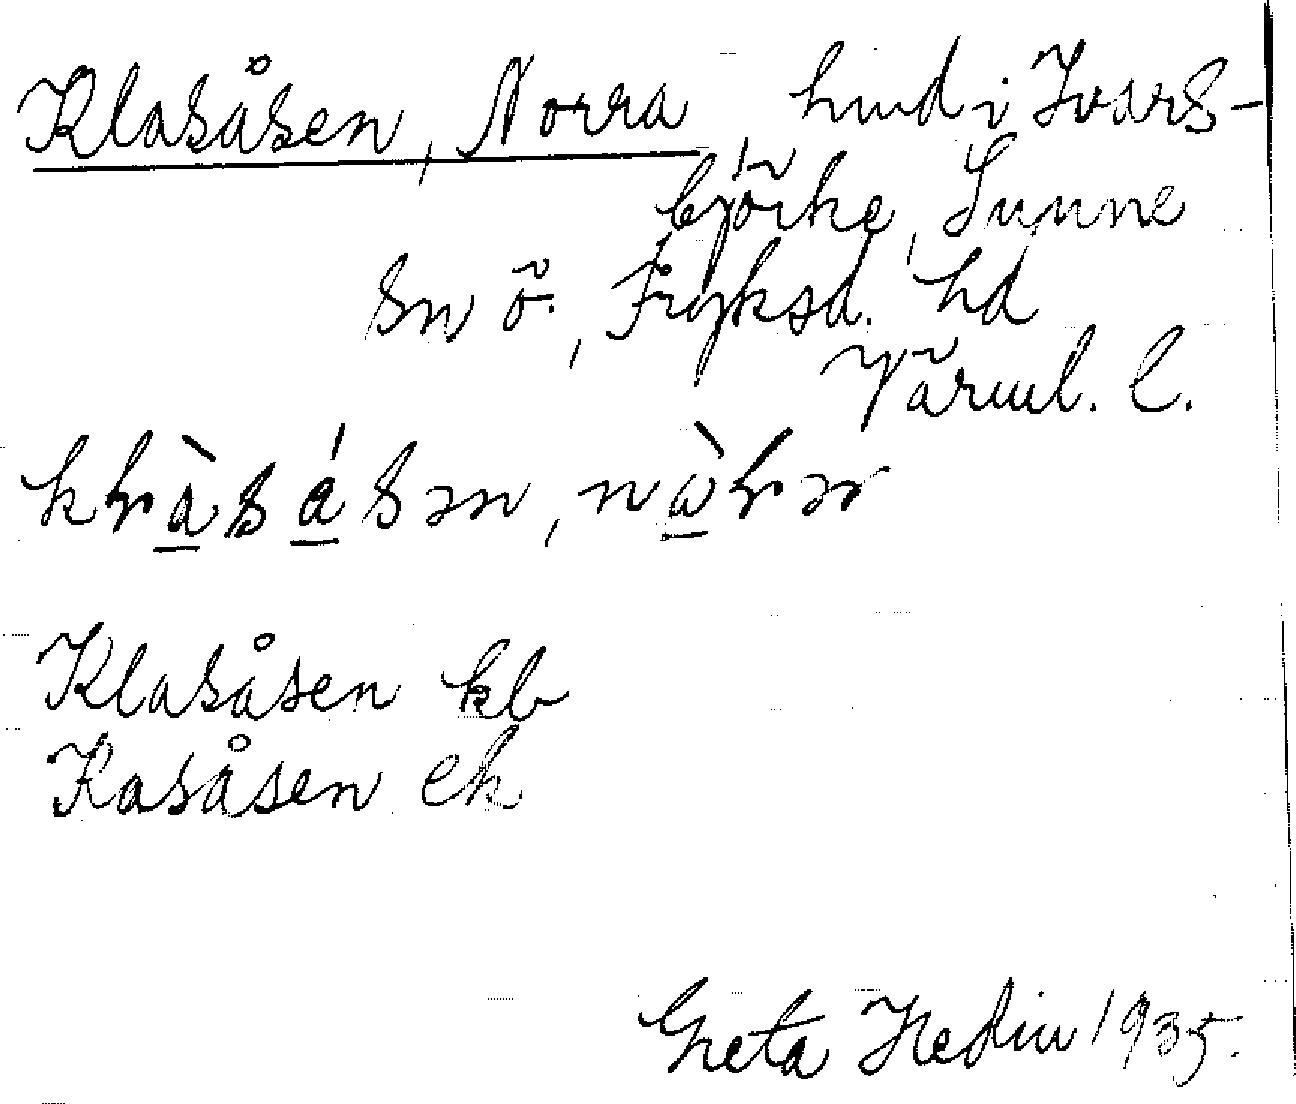 Klasåsen, Norra, hmd i Ivars-
björke, Sunne
sn ö., Fryksd. hd
Värml. l.
Klasåsen kb
Kasåsen ek
Greta Hedin 1935.